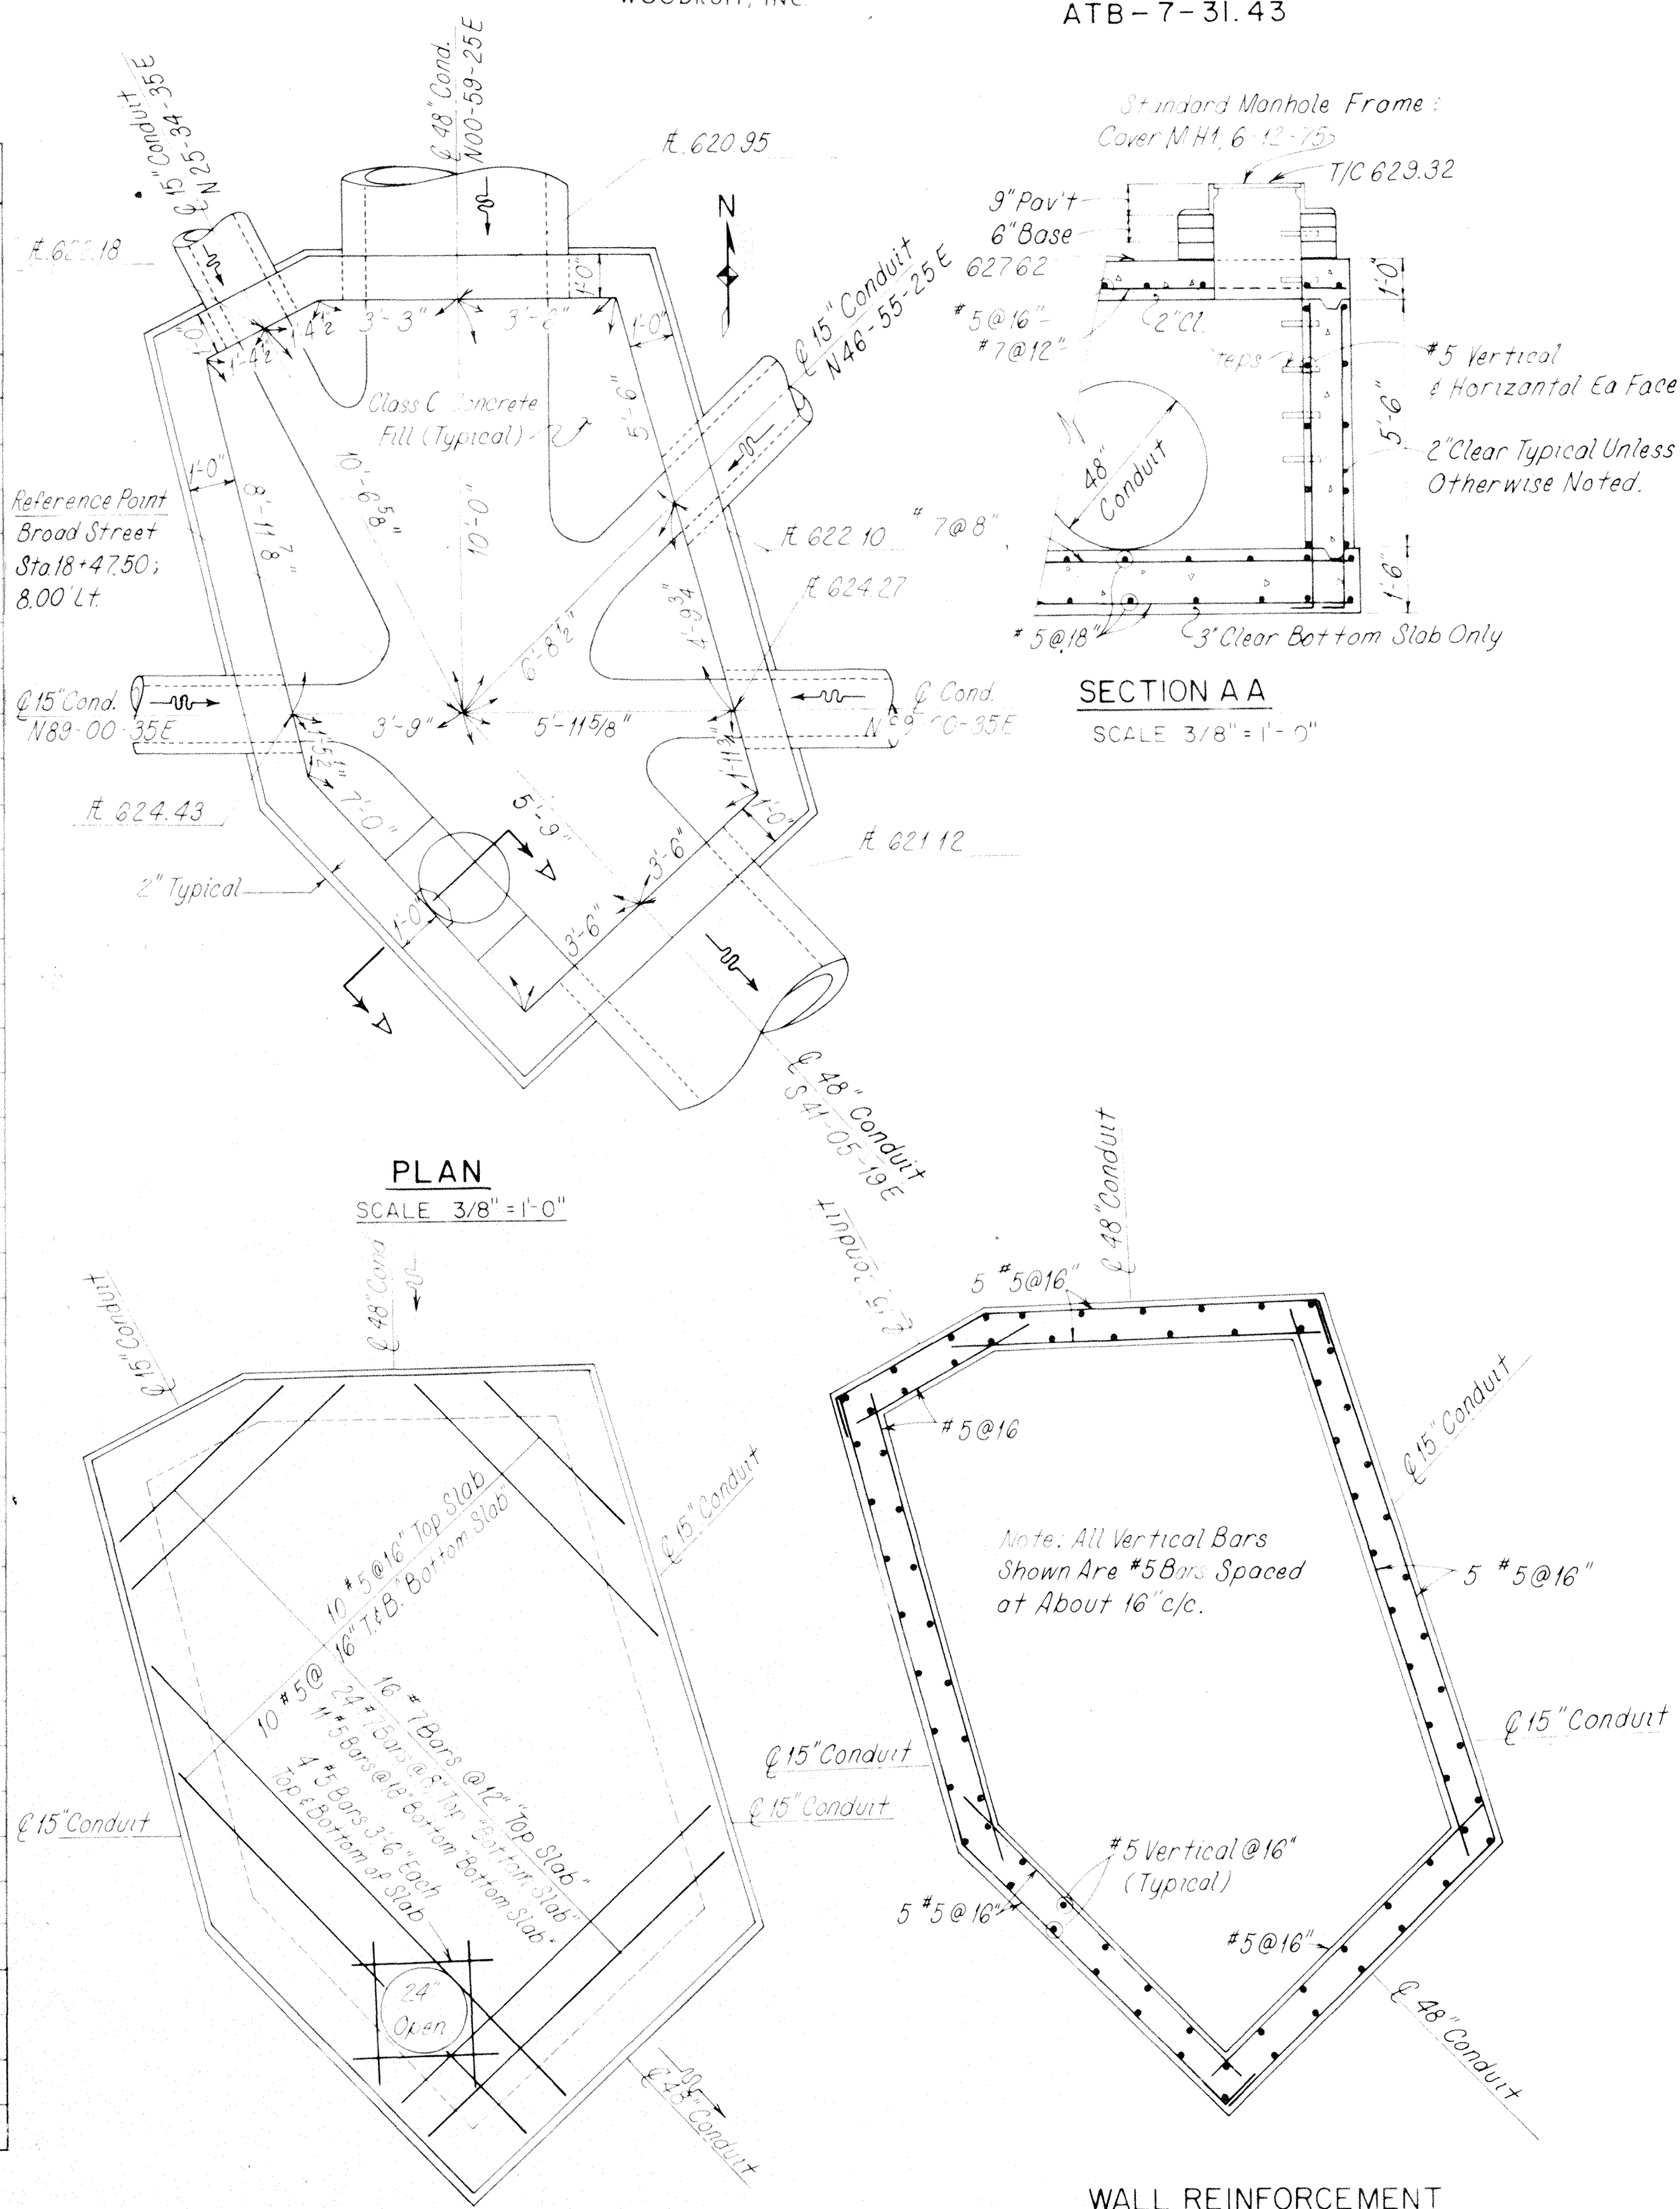 WOODRUFF, INC.
ATB-7-31.43
℄ 15" Conduit
N 25-34-35 E
℄ 48" Cond.
N00-59-25E
℄ 620.95
℄ 622.18
N
℄ 15" Conduit
N46-55-25E
1'-0"
1'-0"
1'-0"
3'-3"
Class C Concrete
Fill (Typical)
5'-6"
1'-0"
8'-11 7/8"
10'-6 5/8"
10'-0"
Reference Point
Broad Street
Sta 18+47.50;
8.00' Lt.
℄ 622.10
℄ 624.27
6'-8 1/2"
4'-6 3/4"
℄ 15" Cond.
N89-00-35E
3'-9"
5'-11 5/8"
℄ Cond.
N 89-00-35E
1'-5 1/2"
7'-0"
℄ 624.43
5'-9"
1'-0"
℄ 621.12
3'-6"
3'-6"
2" Typical
1'-0"
A
A
℄ 48" Conduit
S 41-05-19 E
PLAN
SCALE 3/8" = 1'-0"
Standard Manhole Frame &
Cover MH1, 6-12-75
T/C 629.32
9" Pav't
6" Base
627.62
1'-0"
#5@16"
#7@12"
2" Cl.
Steps
#5 Vertical
& Horizantal Ea Face
5'-6"
2" Clear Typical Unless
Otherwise Noted.
48"
Conduit
#7@8"
1'-6"
#5@18"
3" Clear Bottom Slab Only
SECTION A A
SCALE 3/8" = 1'-0"
℄ 15" Conduit
℄ 48" Cond
℄ 15" Conduit
10 #5@16" Top Slab
10 #5@ 16" T.&B. "Bottom Slab"
16 #7 Bars @12" "Top Slab"
24 #7 Bars @8" Top "Bottom Slab"
11 #5 Bars @18" Bottom "Bottom Slab"
4 #5 Bars 3'-6" Each
Top & Bottom of Slab
℄ 15" Conduit
℄ 15" Conduit
24"
Open
℄ 48" Conduit
℄ 15" Conduit
5 #5@16"
℄ 48" Conduit
#5@16
℄ 15" Conduit
Note: All Vertical Bars
Shown Are #5 Bars Spaced
at About 16" c/c.
5 #5@16"
℄ 15" Conduit
℄ 15" Conduit
#5 Vertical @16"
(Typical)
5 #5@16"
#5@16"
℄ 48" Conduit
WALL REINFORCEMENT